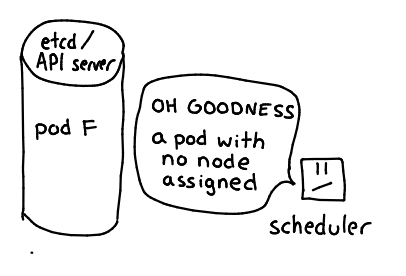 etcd/
API server
pod F
OH GOODNESS
a pod with
no node
assigned
scheduler